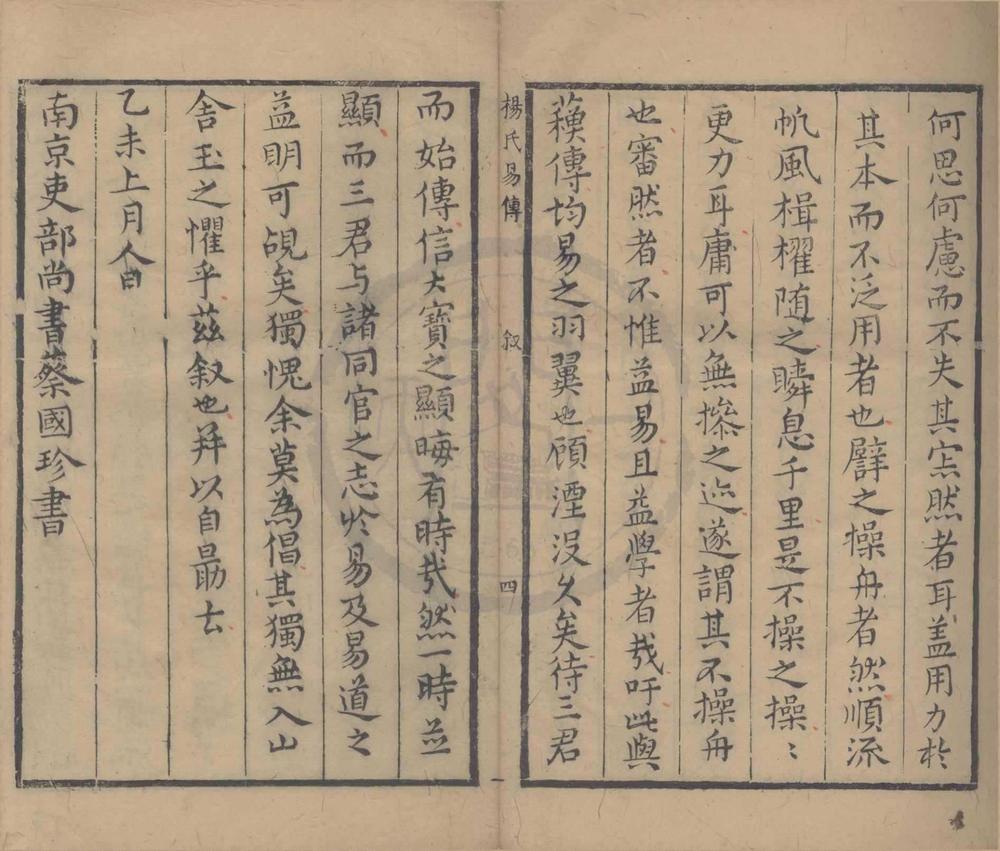 何思何慮而不失其寂然者耳盖用力於
其本而不泛用者也譬之操舟者然順流
帆風楫櫂随之瞬息千里是不操之操〻
更力耳庸可以無摻之迹遂謂其不操舟
也審然者不惟益易且益學者㢤吁此與
蘓傳均易之羽翼也顧湮没久矣待三君
楊氏易傳
叙
四
而始傳信大寶之顯晦有時㢤然一時並
顯而三君与諸同官之志於易及易道之
益明可覘矣獨愧余莫為倡其獨無入山
舍玉之懼乎茲叙也并以自勗云
乙未上月
南京吏部尚書蔡國珍書